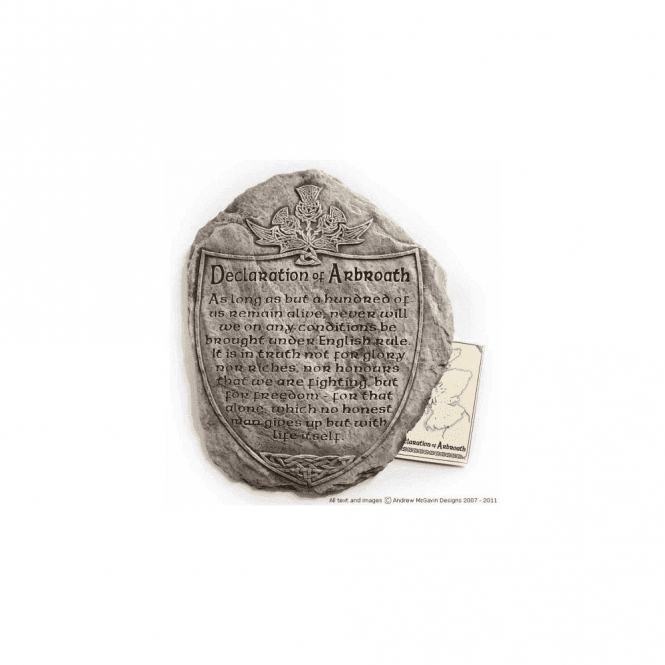 Declaration of Arbroath
As long as but a hundred of
us remain alive, never will
we on any conditions be
brought under English rule.
It is in truth not for glory,
nor riches, nor honours
that we are fighting, but
for freedom - for that
alone, which no honest
man gives up but with
life itself.
laration of Arbroath
All text and images © Andrew McGavin Designs 2007 - 2011